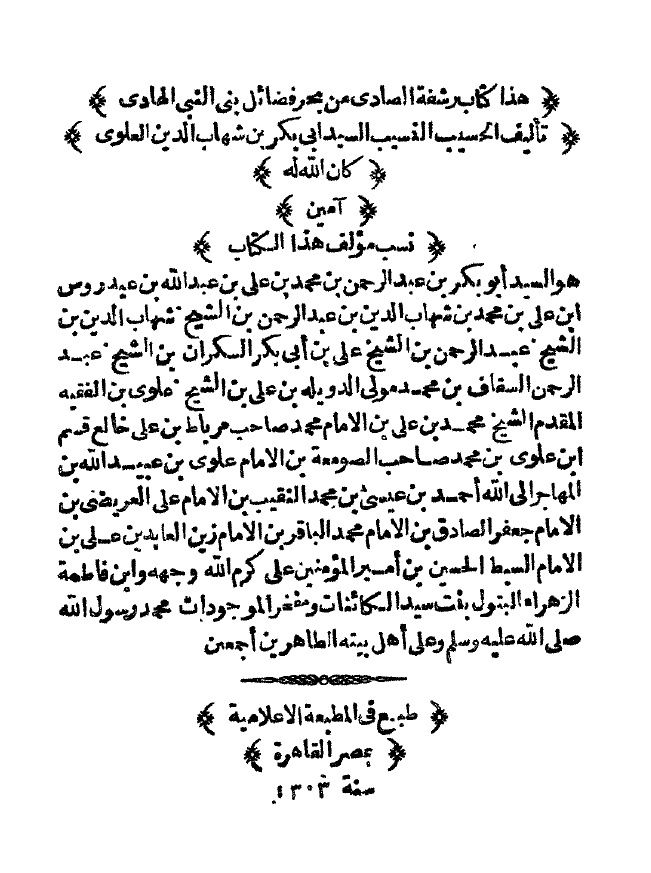 ﴿ هذا كتاب رشفة الصادى من بحر فضائل بنى النبى الهادى ﴾
﴿ تأليف الحسيب النسيب السيد ابى بكر بن شهاب الدين العلوى ﴾
﴿ كان الله له ﴾
﴿ آمين ﴾
﴿ نسب مؤلف هذا الكتاب ﴾
هو السيد أبو بكر بن عبد الرحمن بن محمد بن على بن عبد الله بن عيدروس
ابن على بن محمد بن شهاب الدين بن عبد الرحمن بن الشيخ شهاب الدين بن
الشيخ عبد الرحمن بن الشيخ على بن أبى بكر السكران بن الشيخ عبد
الرحمن السقاف بن محمد مولى الدويله بن على بن الشيخ علوى بن الفقيه
المقدم الشيخ محمد بن على بن الامام محمد صاحب مرباط بن على خالع قسم
ابن علوى بن محمد صاحب الصومعة بن الامام علوى بن عبيد الله بن
المهاجر الى الله أحمد بن عيسى بن محمد النقيب بن الامام على العريضى بن
الامام جعفر الصادق بن الامام محمد الباقر بن الامام زين العابدين على بن
الامام السبط الحسين بن أمير المؤمنين على كرم الله وجهه وابن فاطمة
الزهراء البتول بنت سيد الكائنات ومفخر الموجودات محمد رسول الله
صلى الله عليه وسلم وعلى أهل بيته الطاهرين أجمعين
﴿ طبع فى المطبعة الاعلامية ﴾
﴿ بمصر القاهرة ﴾
سنة ١٣٠٣